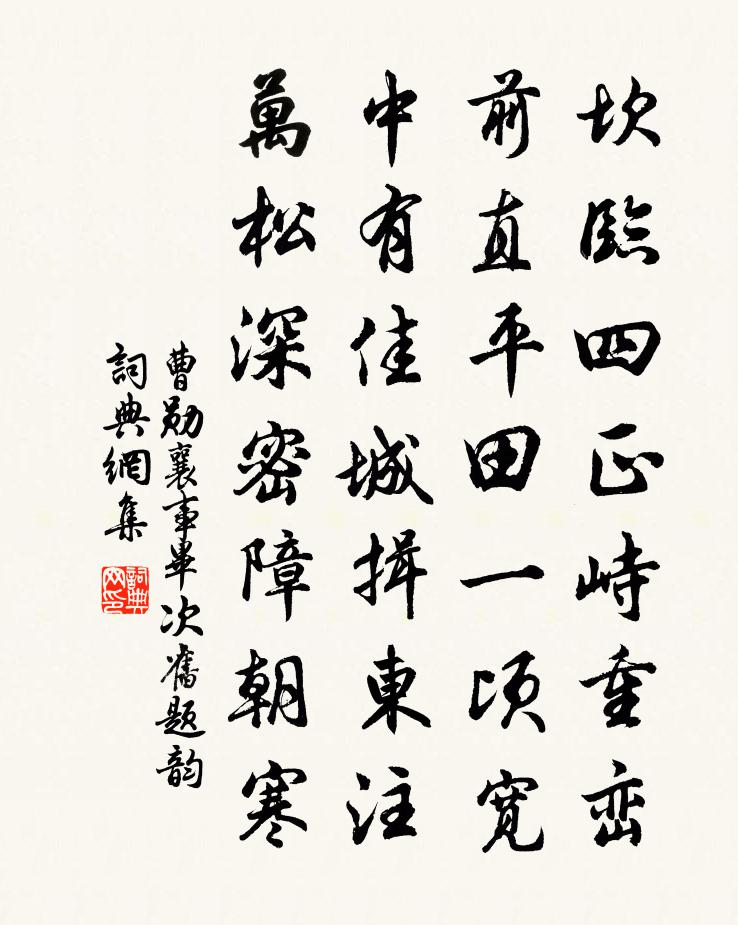 坎臨四正峙重巒
前直平田一頃寬
中有佳城揖東注
萬松深密障朝寒
曹勛襄事畢次舊題韵
詞典網集
詞典网印